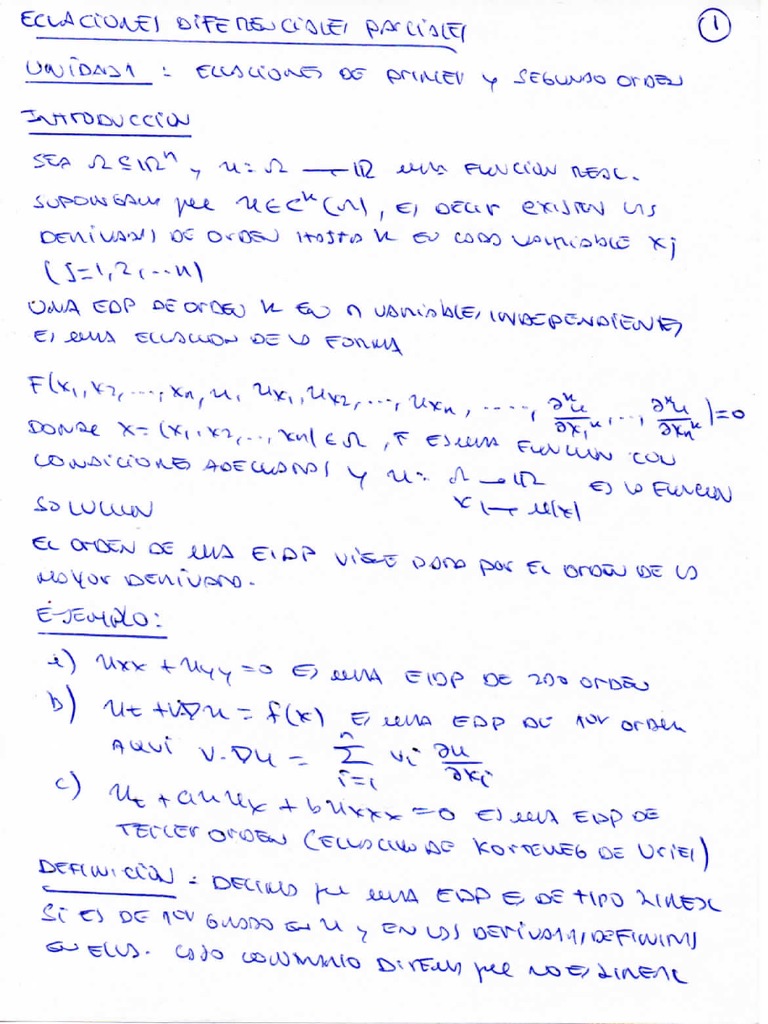 ECUACIONES DIFERENCIALES PARCIALES
1
UNIDAD 1 : ECUACIONES DE PRIMER Y SEGUNDO ORDEN
INTRODUCCIÓN
SEA Ω ⊆ ℝⁿ y u: Ω → ℝ una FUNCIÓN REAL.
SUPONGAMOS que u ∈ Cᵏ(Ω), ES DECIR EXISTEN LAS
DERIVADAS DE ORDEN HASTA k EN CADA VARIABLE xj
(J=1,2,...n)
UNA EDP DE ORDEN k EN n VARIABLES INDEPENDIENTES
ES una ECUACION DE LA FORMA
F(x₁, x₂, ..., xₙ, u, uₓ₁, uₓ₂, ..., uₓₙ, ....., ∂ᵏu/∂x₁ᵏ, ..., ∂ᵏu/∂xₙᵏ) = 0
DONDE x = (x₁, x₂, ..., xₙ) ∈ Ω, F ES una FUNCION CON
CONDICIONES ADECUADAS y u: Ω → ℝ ES LA FUNCION
x ↦ u(x)
SOLUCION
EL ORDEN DE una EDP VIENE DADO por EL ORDEN DE LA
MAYOR DERIVADA.
EJEMPLO:
a) uxx + uyy = 0 ES una EDP DE 2do ORDEN
b) ut + v.∇u = f(x) ES una EDP DE 1er orden
AQUÍ v.∇u = Σ_{i=1}^{n} vi ∂u/∂xi
c) ut + a u ux + b uxxx = 0 ES una EDP DE
TERCER ORDEN (ECUACION DE KORTEWEG DE VRIES)
DEFINICIÓN : DECIMOS que una EDP ES DE TIPO LINEAL
SI ES DE 1er GRADO en u y EN LAS DERIVADAS DEFINIDAS
en ELLA. CASO CONTRARIO DIREMOS que NO ES LINEAL